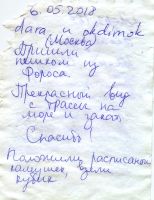 6.05.2018
dara и okdimok
(Москва)
Пришли
пешком из
Фороса.
Прекрасный вид
с трассы на
море и закат.
Спасибо
Положили расписаной
камушек, взяли
кубик